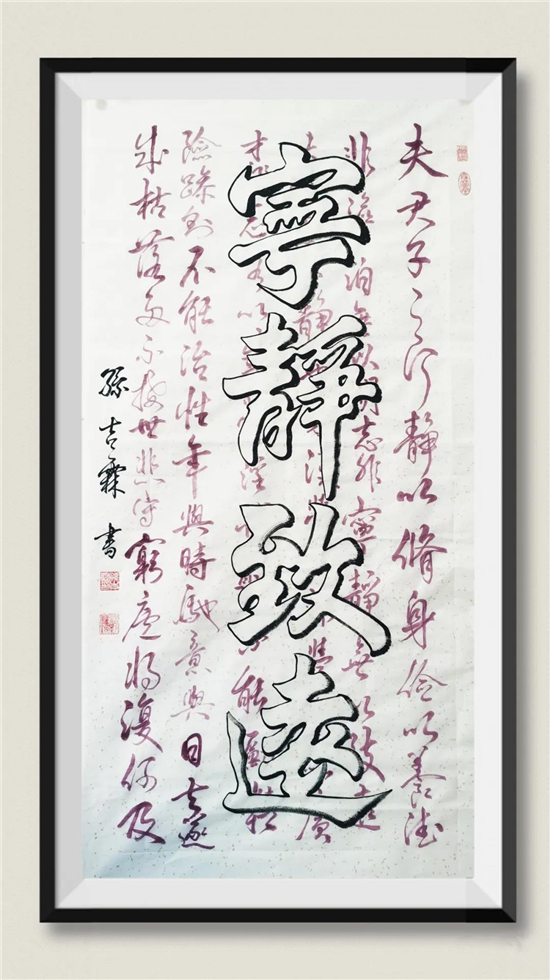 寧靜致遠
夫君子之行靜以脩身儉以養德
非澹泊無以明志非寧靜無以致遠
夫靜須廣
才非志無以淫能勵精
險躁則不能治性年與時馳意與日去遂
成枯落多不接世悲守窮廬將復何及
孫吉霖書